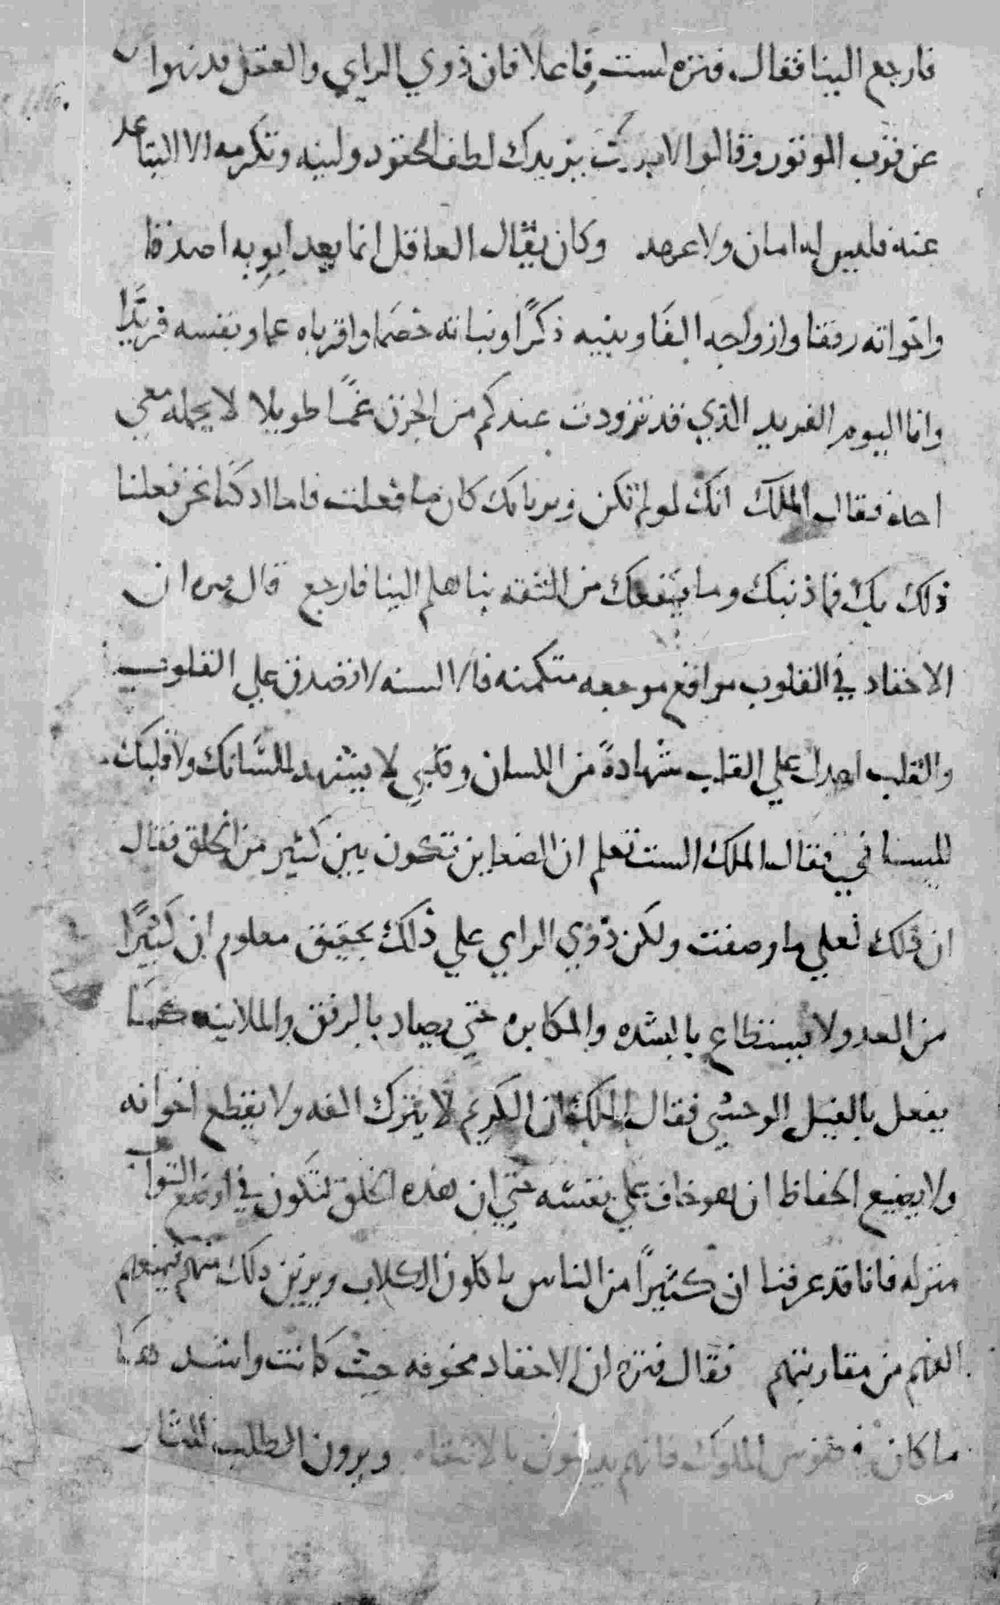 فارجع الينا فقال فنزه لست فاعلا فان ذوي الراي والعقل قد نهوا
عن قرب الموتور وقالوا لا يزيدك لطف الحقود ولينه وتكرمه الا التباعد
عنه فليس له امان ولا عهد وكان يقال العاقل انما يعد ابويه اصدقا
واخواته رفقا وازواجه الفا وبنيه ذكرًا وبناته خصما واقرباه غما ونفسه فريدًا
وانا اليوم الفريد الذي قد تزودت عندكم من الحزن غمًا طويلا لا يحمله معي
احد فقال الملك انك لو لم تكن كان ما فعلت فاما اد كنا نحن فعلنا
ذلك بك فما ذنبك وما يمنعك من الثقه بنا هلم الينا فارجع قال ان
الاحقاد في القلوب مواقع موجعه متمكنه فالالسنه لا تصدق علي القلوب
والقلب اعدل علي القلب شهادةً من اللسان وقلبي لا يشهد للسانك ولا قلبك
للساني فقال الملك الست تعلم ان الضغاين تكون بين كثير من الخلق فقال
ان ذلك لعلي ما وصفت ولكن ذوي الراي علي ذلك معلوم ان كثيرًا
من العدو لا يستطاع بالشده والمكابره حتي يصاد بالرفق والملاينه كما
يفعل بالفيل الوحشي فقال الملك ان الكريم لا يترك الفه ولا يقطع اخوانه
ولا يضيع الحفاظ ان هو خاف علي نفسه حتي ان هذه الخلق لتكون في اوضع الدواب
منزله فانا قد عرفنا ان كثيرًا من الناس ياكلون الكلاب ويرين ذلك منهم فيمنعهم
من مقاربتهم فقال فنزه ان الاحقاد مخوفه حيث كانت واشد
ما كان نفوس الملوك فانهم يدينون بالانتقام ويرون الطلب الثار